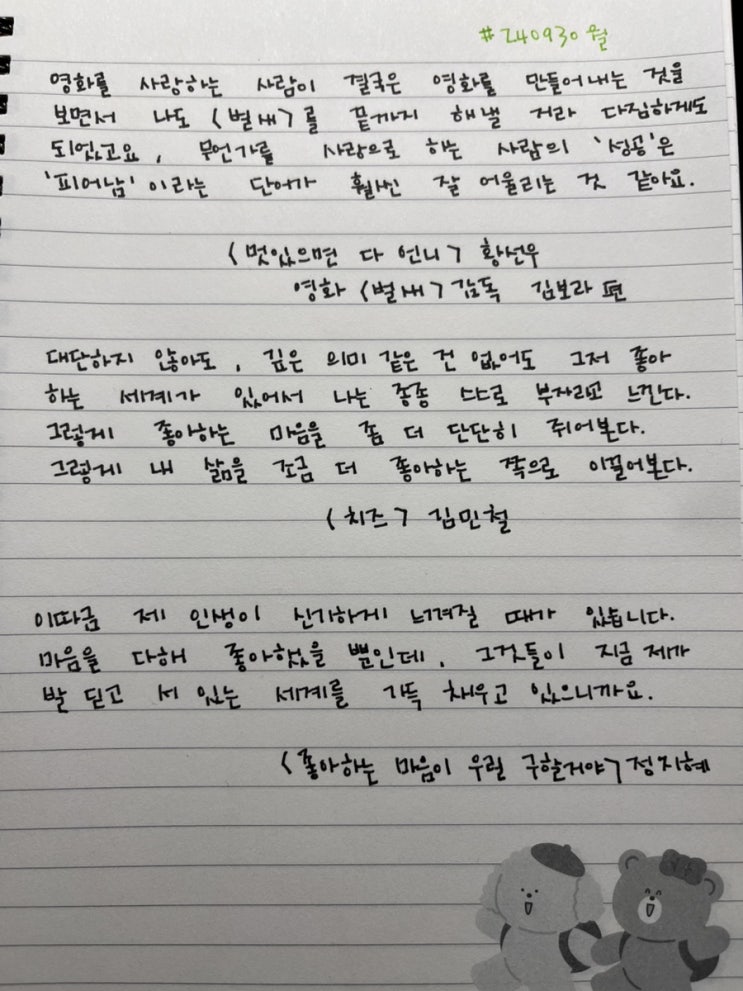 #240930 월
영화를 사랑하는 사람이 결국은 영화를 만들어내는 것을
보면서 나도 〈벌새〉를 끝까지 해낼 거라 다짐하게도
되었고요, 무언가를 사랑으로 하는 사람의 '성공'은
'피어남' 이라는 단어가 훨씬 잘 어울리는 것 같아요.
〈멋있으면 다 언니〉 황선우
영화 〈벌새〉 감독 김보라 편
대단하지 않아도, 깊은 의미 같은 건 없어도 그저 좋아
하는 세계가 있어서 나는 종종 스스로 부자라고 느낀다.
그렇게 좋아하는 마음을 좀 더 단단히 쥐어본다.
그렇게 내 삶을 조금 더 좋아하는 쪽으로 이끌어본다.
〈치즈〉 김민철
이따금 제 인생이 신기하게 느껴질 때가 있습니다.
마음을 다해 좋아했을 뿐인데, 그것들이 지금 제가
발 딛고 서 있는 세계를 가득 채우고 있으니까요.
〈좋아하는 마음이 우릴 구할거야〉 정지혜